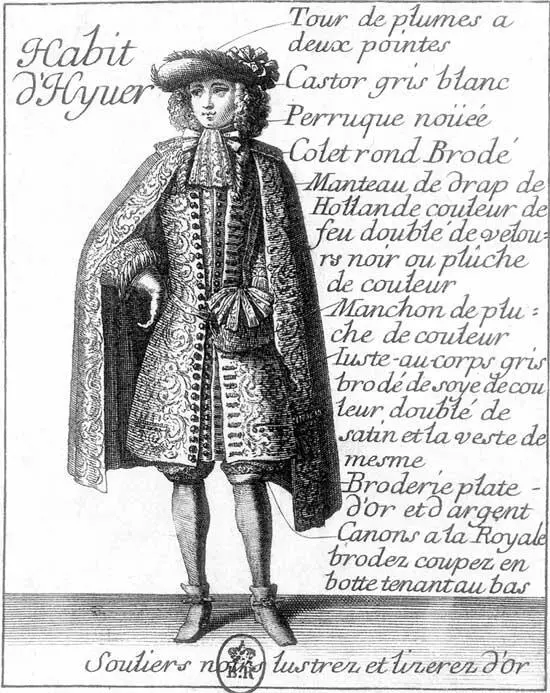 Habit
d'Hyuer
Tour de plumes a
deux pointes
Castor gris blanc
Perruque noüeé
Colet rond Brodé
Manteau de drap de
Hollande couleur de
feu doublé de velou-
rs noir ou plûche
de couleur
Manchon de plu:
che de couleur
Iuste-au-corps gris
brodé de soye de cou
leur doublé de
satin et la veste de
mesme
Broderie plate -
d'Or et d'argent
Canons a la Royale
brodez coupez en
botte tenant au bas
Souliers noirs lustrez et lizerez d'Or
B.R